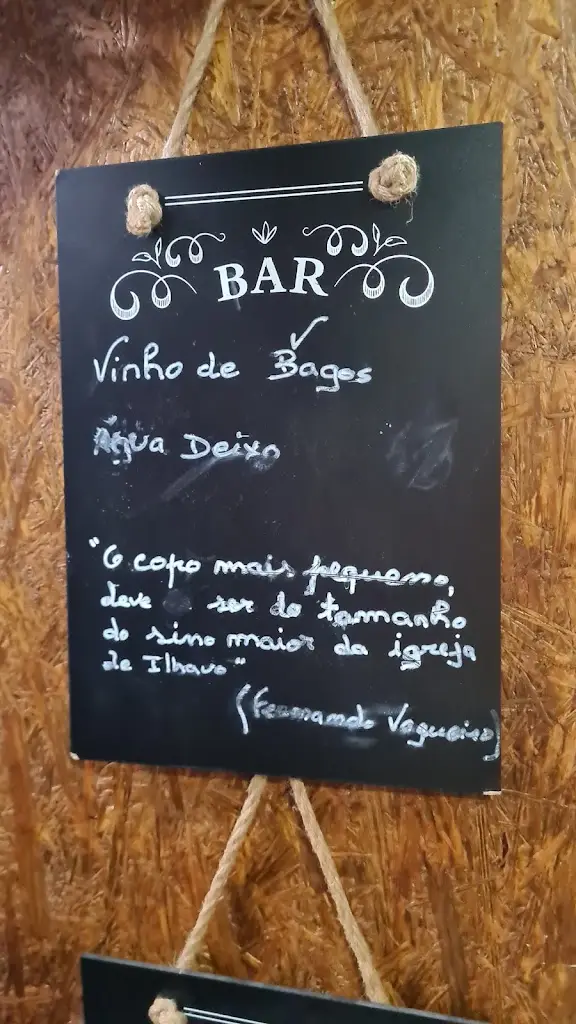 BAR
Vinho de Bagos
Água Deixo
"O copo mais pequeno,
deve ser do tamanho
do sino maior da igreja
de Ilhavo"
(Fernando Vagueiro)